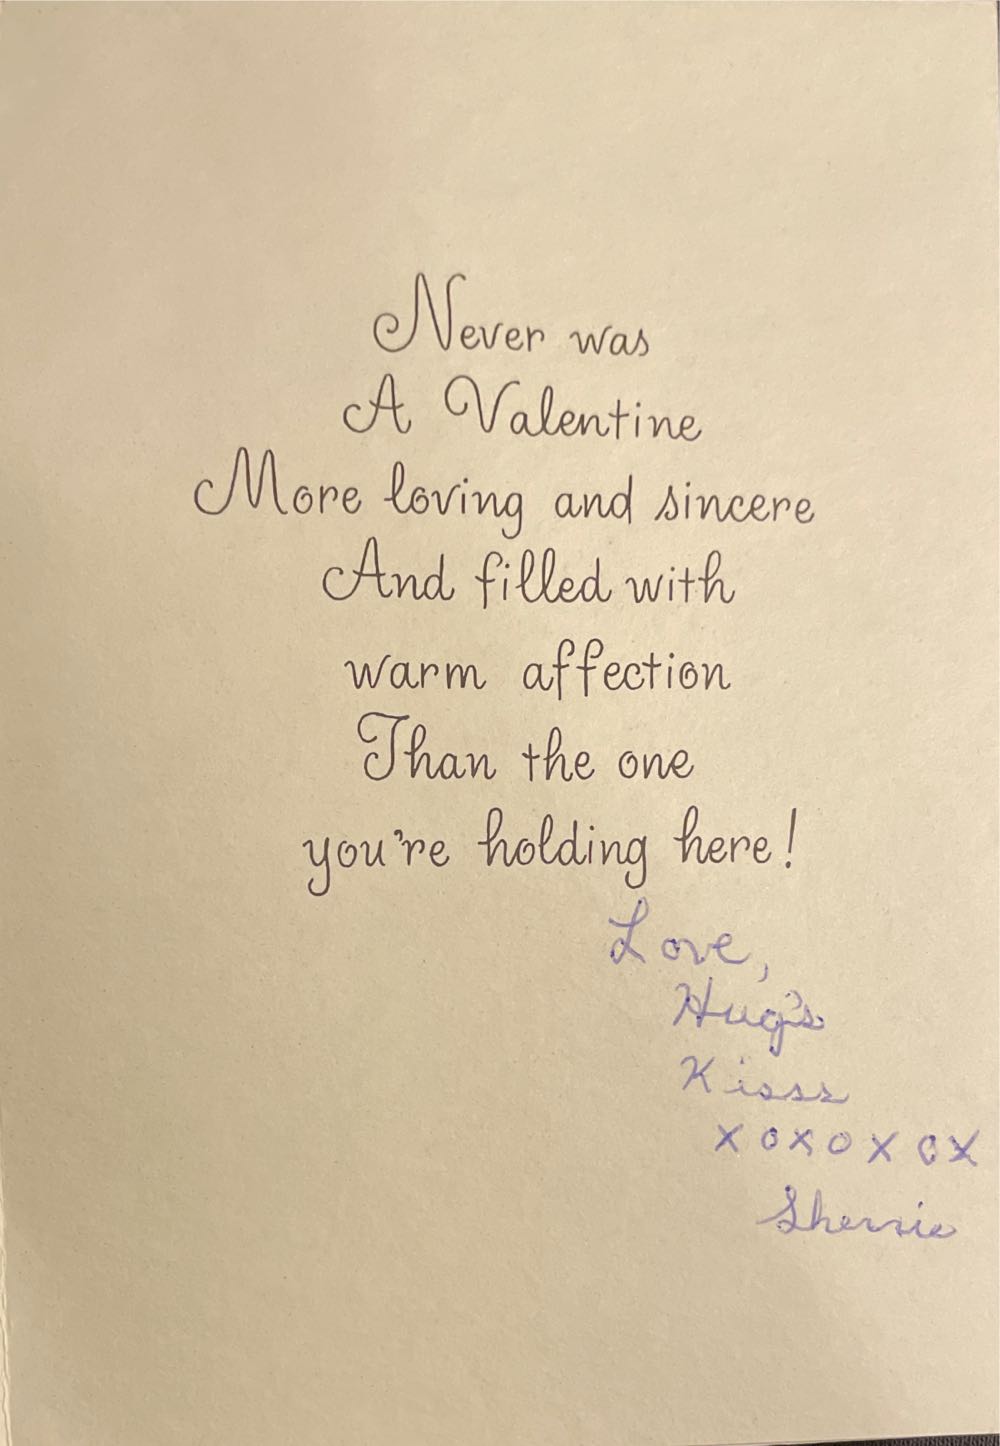 Never was
A Valentine
More loving and sincere
And filled with
warm affection
Than the one
you're holding here!
Love,
Hug's
Kisss
xoxoxox
Sherrie